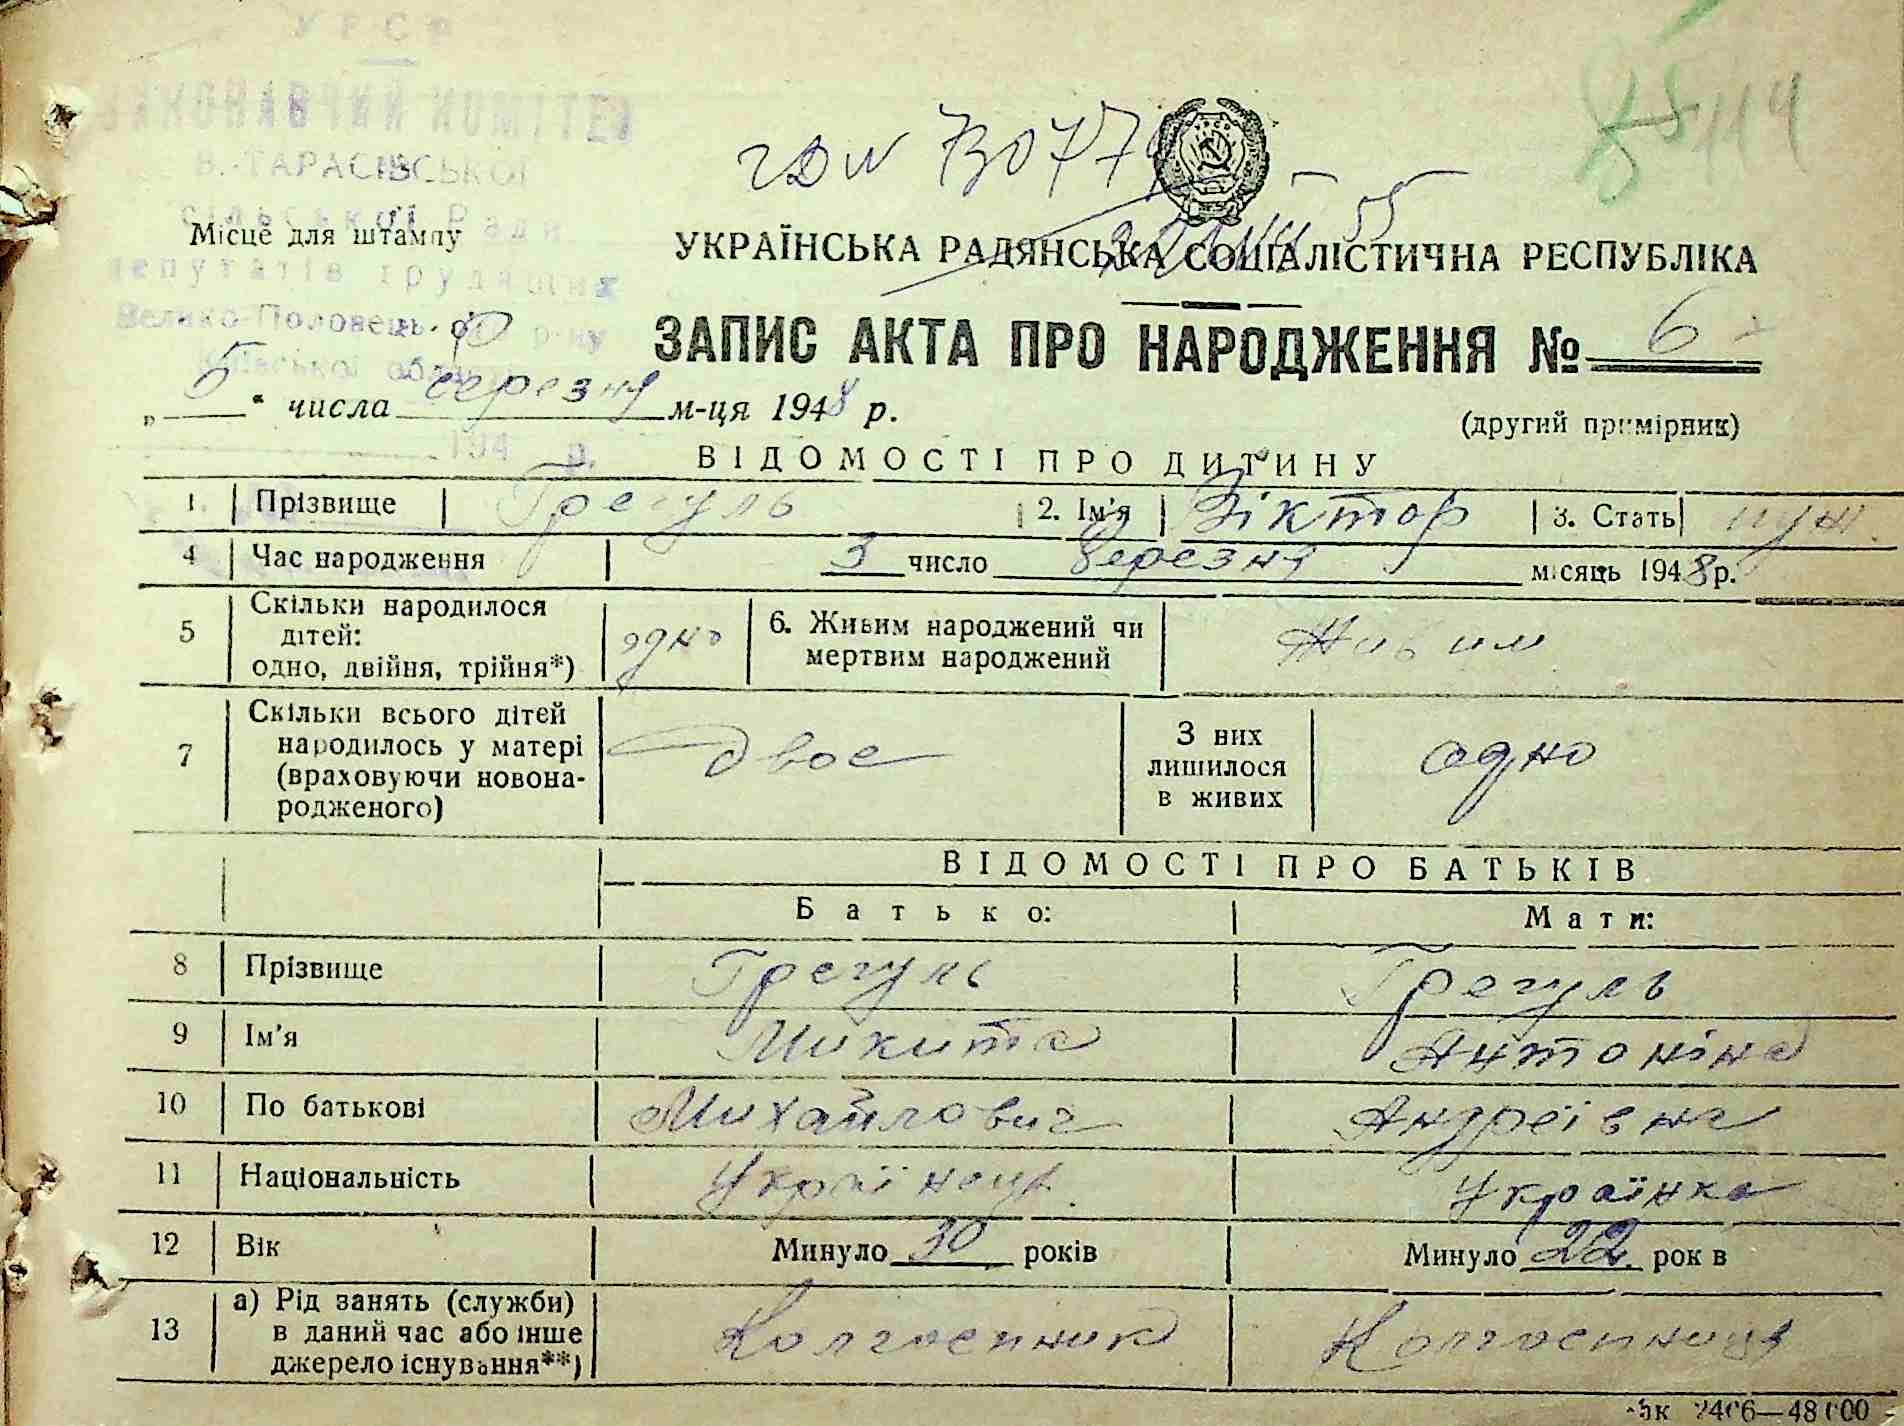 УРСР
ВИКОНАВЧИЙ КОМІТЕТ
В.-ТАРАСІВСЬКОЇ
сільської Ради
депутатів трудящих
Велико-Половець р-ну
Київської обл.
194 р.
114
Місце для штампу
УКРАЇНСЬКА РАДЯНСЬКА СОЦІАЛІСТИЧНА РЕСПУБЛІКА
ЗАПИС АКТА ПРО НАРОДЖЕННЯ № 6
„ 5 " числа березня м-ця 1948 р.
(другий примірник)
ВІДОМОСТІ ПРО ДИТИНУ
1. Прізвище Грегуль 2. Ім'я Віктор 3. Стать муж.
4 Час народження 3 число березня місяць 1948 р.
5 Скільки народилося дітей: одно, двійня, трійня*) одно 6. Живим народжений чи мертвим народжений Живим
7 Скільки всього дітей народилось у матері (враховуючи новонародженого) двое З них лишилося в живих одно
ВІДОМОСТІ ПРО БАТЬКІВ
Батько: Мати:
8 Прізвище Грегуль Грегуль
9 Ім'я Микита Антоніна
10 По батькові Михайлович Андреївна
11 Національність Українець Українка
12 Вік Минуло 30 років Минуло 22 років
13 а) Рід занять (служби) в даний час або інше джерело існування**) Колгоспник Колгоспниця
2406—48000